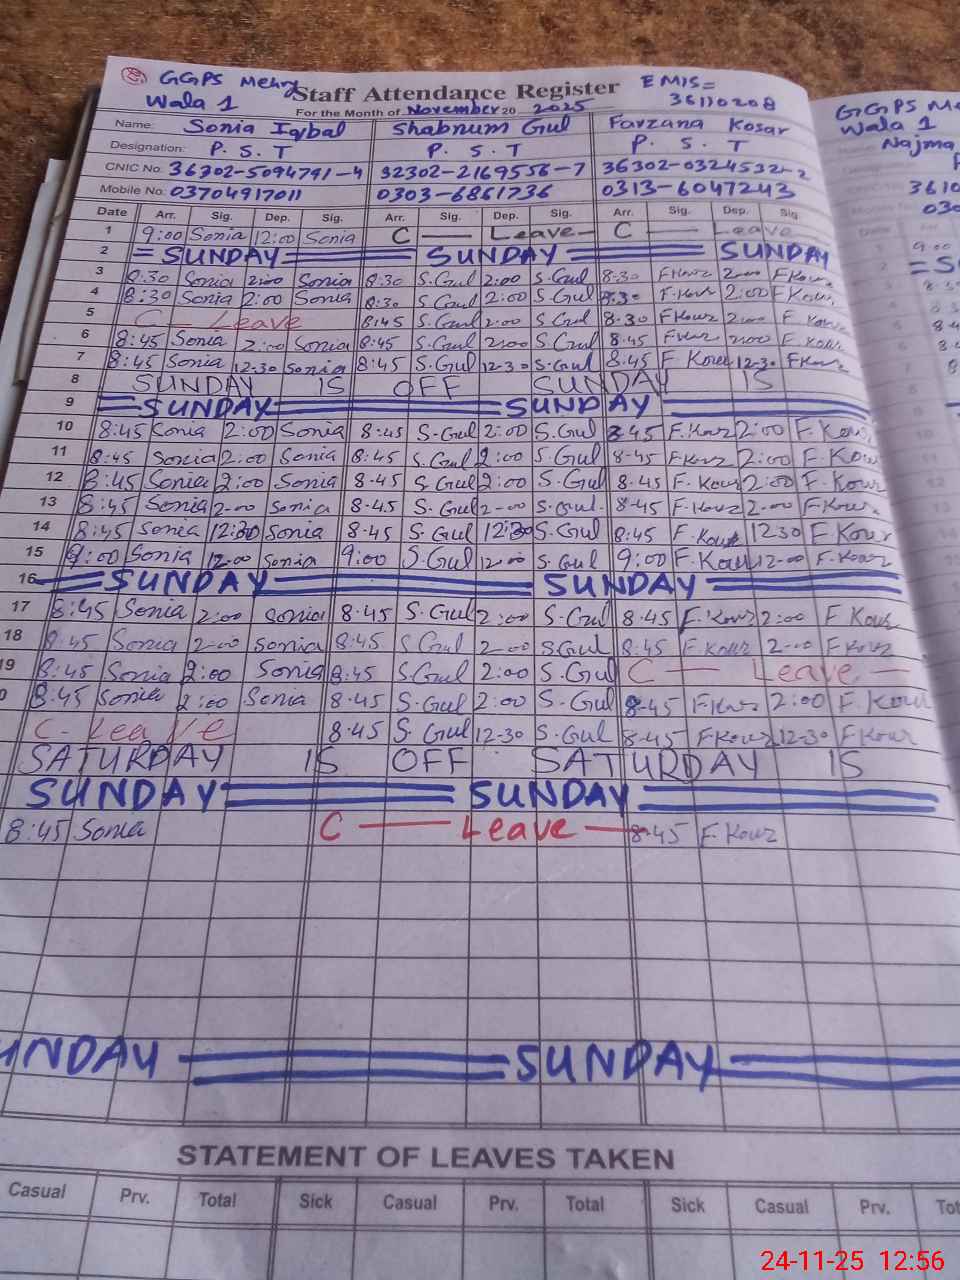 GGPS Mehry Staff Attendance Register EMIS=
Wala 1 For the Month of November 20 2025 36110208
Name: Sonia Iqbal Shabnum Gul Farzana Kosar
Designation: P. S. T P. S. T P. S. T
CNIC No: 36302-5094791-4 32302-2169556-7 36302-0324532-2
Mobile No: 03704917011 0303-6861736 0313-6047243
Date Arr. Sig. Dep. Sig. Arr. Sig. Dep. Sig. Arr. Sig. Dep. Sig
1 9:00 Sonia 12:00 Sonia C — Leave — C — Leave
2 = SUNDAY = SUNDAY = SUNDAY
3 8:30 Sonia 2:00 Sonia 8:30 S.Gul 2:00 S.Gul 8-30 F.Kour 2-00 F Kour
4 8:30 Sonia 2:00 Sonia 8:30 S.Gul 2:00 S.Gul 8.30 F.Kour 2:00 F Kour
5 C — Leave 8:45 S.Gul 2:00 S.Gul 8-30 F Kour 2-00 F. Kour
6 8:45 Sonia 2:00 Sonia 8:45 S.Gul 2:00 S.Gul 8.45 F Kour 2:00 F. Kour
7 8:45 Sonia 12-30 Sonia 8:45 S.Gul 12-30 S.Gul 8.45 F. Kour 12-30 F Kour
8 SUNDAY IS OFF SUNDAY IS
9 = SUNDAY = SUNDAY =
10 8:45 Sonia 2:00 Sonia 8:45 S.Gul 2:00 S.Gul 8-45 F.Kour 2:00 F. Kour
11 8:45 Sonia 2:00 Sonia 8:45 S.Gul 2:00 S.Gul 8-45 F Kour 2:00 F. Kour
12 8:45 Sonia 2:00 Sonia 8-45 S Gul 2:00 S.Gul 8.45 F. Kour 2:00 F. Kour
13 8:45 Sonia 2-00 Sonia 8.45 S.Gul 2-00 S.Gul. 8-45 F.Kour 2-00 F.Kour.
14 8:45 Sonia 12:30 Sonia 8.45 S.Gul 12:30 S.Gul 8:45 F.Kour 12 30 F Kour
15 9:00 Sonia 12:00 Sonia 9:00 S.Gul 12:00 S.Gul 9:00 F.Kour 12-00 F.Kour
16 = SUNDAY = SUNDAY =
17 8:45 Sonia 2:00 Sonia 8.45 S.Gul 2:00 S.Gul 8.45 F.Kour 2:00 F Kour
18 8:45 Sonia 2-00 Sonia 8:45 S Gul 2-00 S Gul 8:45 F Kour 2-00 F Kour
19 8:45 Sonia 2:00 Sonia 8:45 S.Gul 2:00 S.Gul C — Leave —
0 8:45 Sonia 2:00 Sonia 8:45 S.Gul 2:00 S.Gul 8-45 F.Kour 2:00 F. Kour
C- Leave 8:45 S.Gul 12-30 S.Gul 8-45 F Kour 12-30 F Kour
SATURDAY IS OFF SATURDAY IS
SUNDAY = SUNDAY =
8:45 Sonia C — Leave — 8-45 F. Kour
UNDAY = SUNDAY =
STATEMENT OF LEAVES TAKEN
Casual Prv. Total Sick Casual Prv. Total Sick Casual Prv. Tot
GGPS Me
Wala 1
Najma
3610
030
24-11-25 12:56